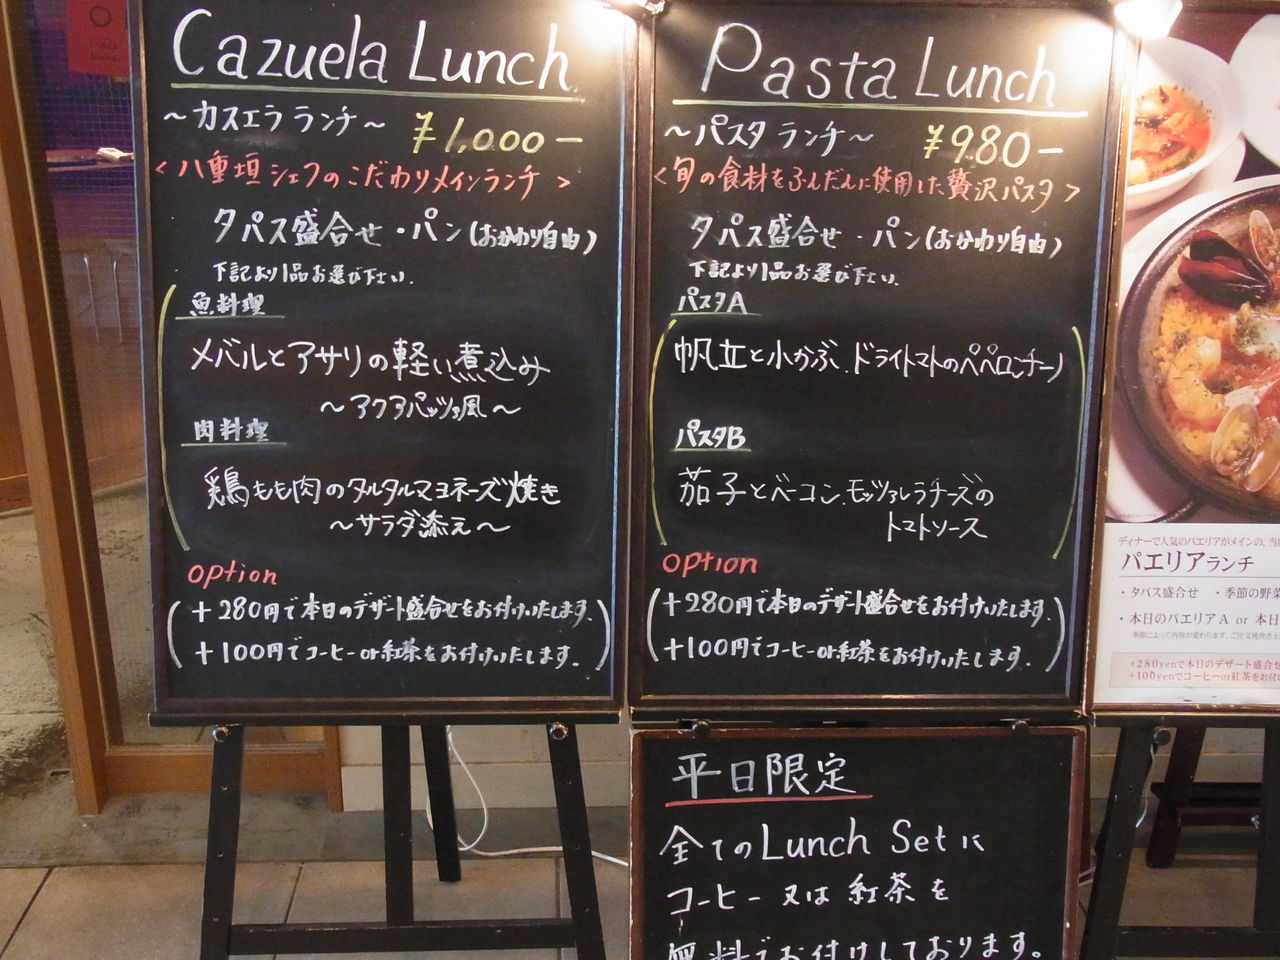 Cazuela Lunch
～カスエラランチ～ ¥1,000－
＜八重垣シェフのこだわりメインランチ＞
タパス盛合せ・パン(おかわり自由)
下記より1品お選び下さい.
魚料理
メバルとアサリの軽い煮込み
～アクアパッツァ風～
肉料理
鶏もも肉のタルタルマヨネーズ焼き
～サラダ添え～
option
+280円で本日のデザート盛合せをお付けいたします.
+100円でコーヒーor紅茶をお付けいたします.
Pasta Lunch
～パスタランチ～ ¥980－
＜旬の食材をふんだんに使用した贅沢パスタ＞
タパス盛合せ・パン(おかわり自由)
下記より1品お選び下さい.
パスタA
帆立と小かぶ.ドライトマトのペペロンチーノ
パスタB
茄子とベーコン.モッツァレラチーズの
トマトソース
option
+280円で本日のデザート盛合せをお付けいたします.
+100円でコーヒーor紅茶をお付けいたします.
平日限定
全てのLunch Setに
コーヒー又は紅茶を
無料でお付けしております。
ディナーで人気のパエリアがメインの、当
パエリアランチ
・タパス盛合せ ・季節の野菜
・本日のパエリアA or 本日
季節によって内容が変わります。ご注文後炊き
+280yenで本日のデザート盛合せ
+100yenでコーヒーor紅茶をお付